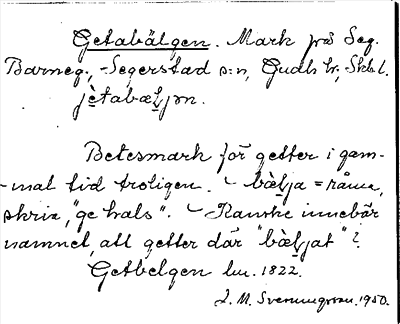 Getabälgen. Mark på Seg.
Barneg., Segerstad s:n, Gudh hr, Skbl.
jètabæljən.
Betesmark för getter i gam-
-mal tid troligen. ⌣ bælja = råma,
skria, "ge hals". ⌣ Kanske innebär
namnet, att getter där "bæljat"?
Getbelgen lm. 1822.
J. M. Svennungsson. 1950.